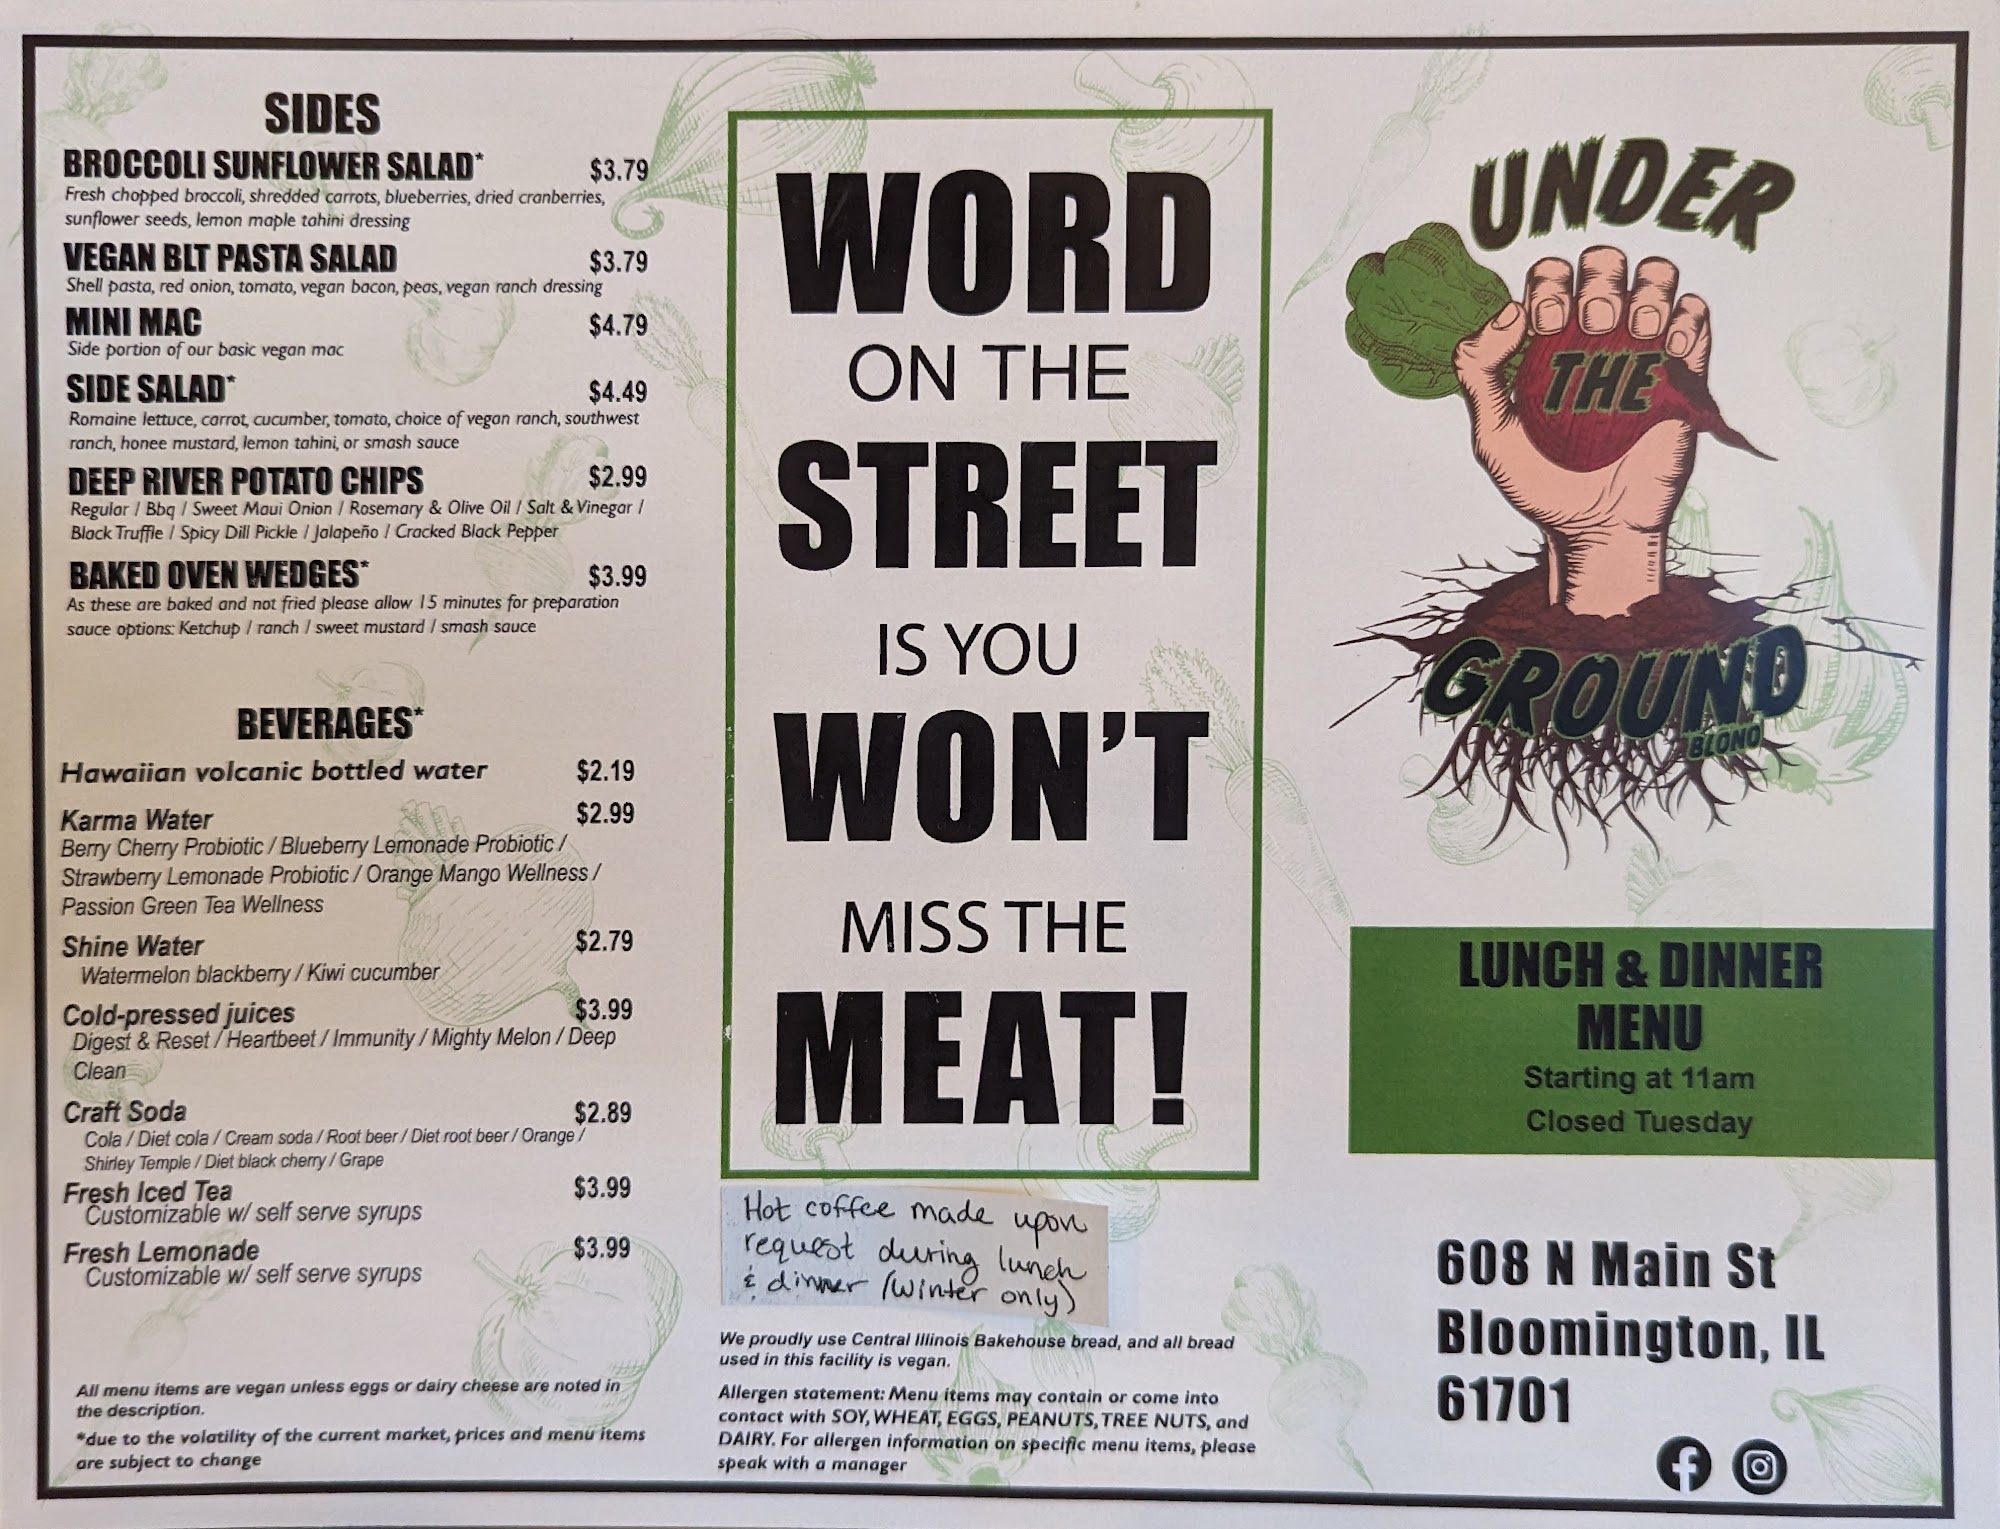 SIDES
BROCCOLI SUNFLOWER SALAD* $3.79
Fresh chopped broccoli, shredded carrots, blueberries, dried cranberries,
sunflower seeds, lemon maple tahini dressing
VEGAN BLT PASTA SALAD $3.79
Shell pasta, red onion, tomato, vegan bacon, peas, vegan ranch dressing
MINI MAC $4.79
Side portion of our basic vegan mac
SIDE SALAD* $4.49
Romaine lettuce, carrot, cucumber, tomato, choice of vegan ranch, southwest
ranch, honee mustard, lemon tahini, or smash sauce
DEEP RIVER POTATO CHIPS $2.99
Regular / Bbq / Sweet Maui Onion / Rosemary & Olive Oil / Salt & Vinegar /
Black Truffle / Spicy Dill Pickle / Jalapeño / Cracked Black Pepper
BAKED OVEN WEDGES* $3.99
As these are baked and not fried please allow 15 minutes for preparation
sauce options: Ketchup / ranch / sweet mustard / smash sauce
BEVERAGES*
Hawaiian volcanic bottled water $2.19
Karma Water $2.99
Berry Cherry Probiotic / Blueberry Lemonade Probiotic /
Strawberry Lemonade Probiotic / Orange Mango Wellness /
Passion Green Tea Wellness
Shine Water $2.79
Watermelon blackberry / Kiwi cucumber
Cold-pressed juices $3.99
Digest & Reset / Heartbeet / Immunity / Mighty Melon / Deep
Clean
Craft Soda $2.89
Cola / Diet cola / Cream soda / Root beer / Diet root beer / Orange /
Shirley Temple / Diet black cherry / Grape
Fresh Iced Tea $3.99
Customizable w/ self serve syrups
Fresh Lemonade $3.99
Customizable w/ self serve syrups
All menu items are vegan unless eggs or dairy cheese are noted in
the description.
*due to the volatility of the current market, prices and menu items
are subject to change
WORD
ON THE
STREET
IS YOU
WON'T
MISS THE
MEAT!
Hot coffee made upon
request during lunch
& dinner (winter only)
We proudly use Central Illinois Bakehouse bread, and all bread
used in this facility is vegan.
Allergen statement: Menu items may contain or come into
contact with SOY, WHEAT, EGGS, PEANUTS, TREE NUTS, and
DAIRY. For allergen information on specific menu items, please
speak with a manager
UNDER
THE
GROUND
BLONO
LUNCH & DINNER
MENU
Starting at 11am
Closed Tuesday
608 N Main St
Bloomington, IL
61701